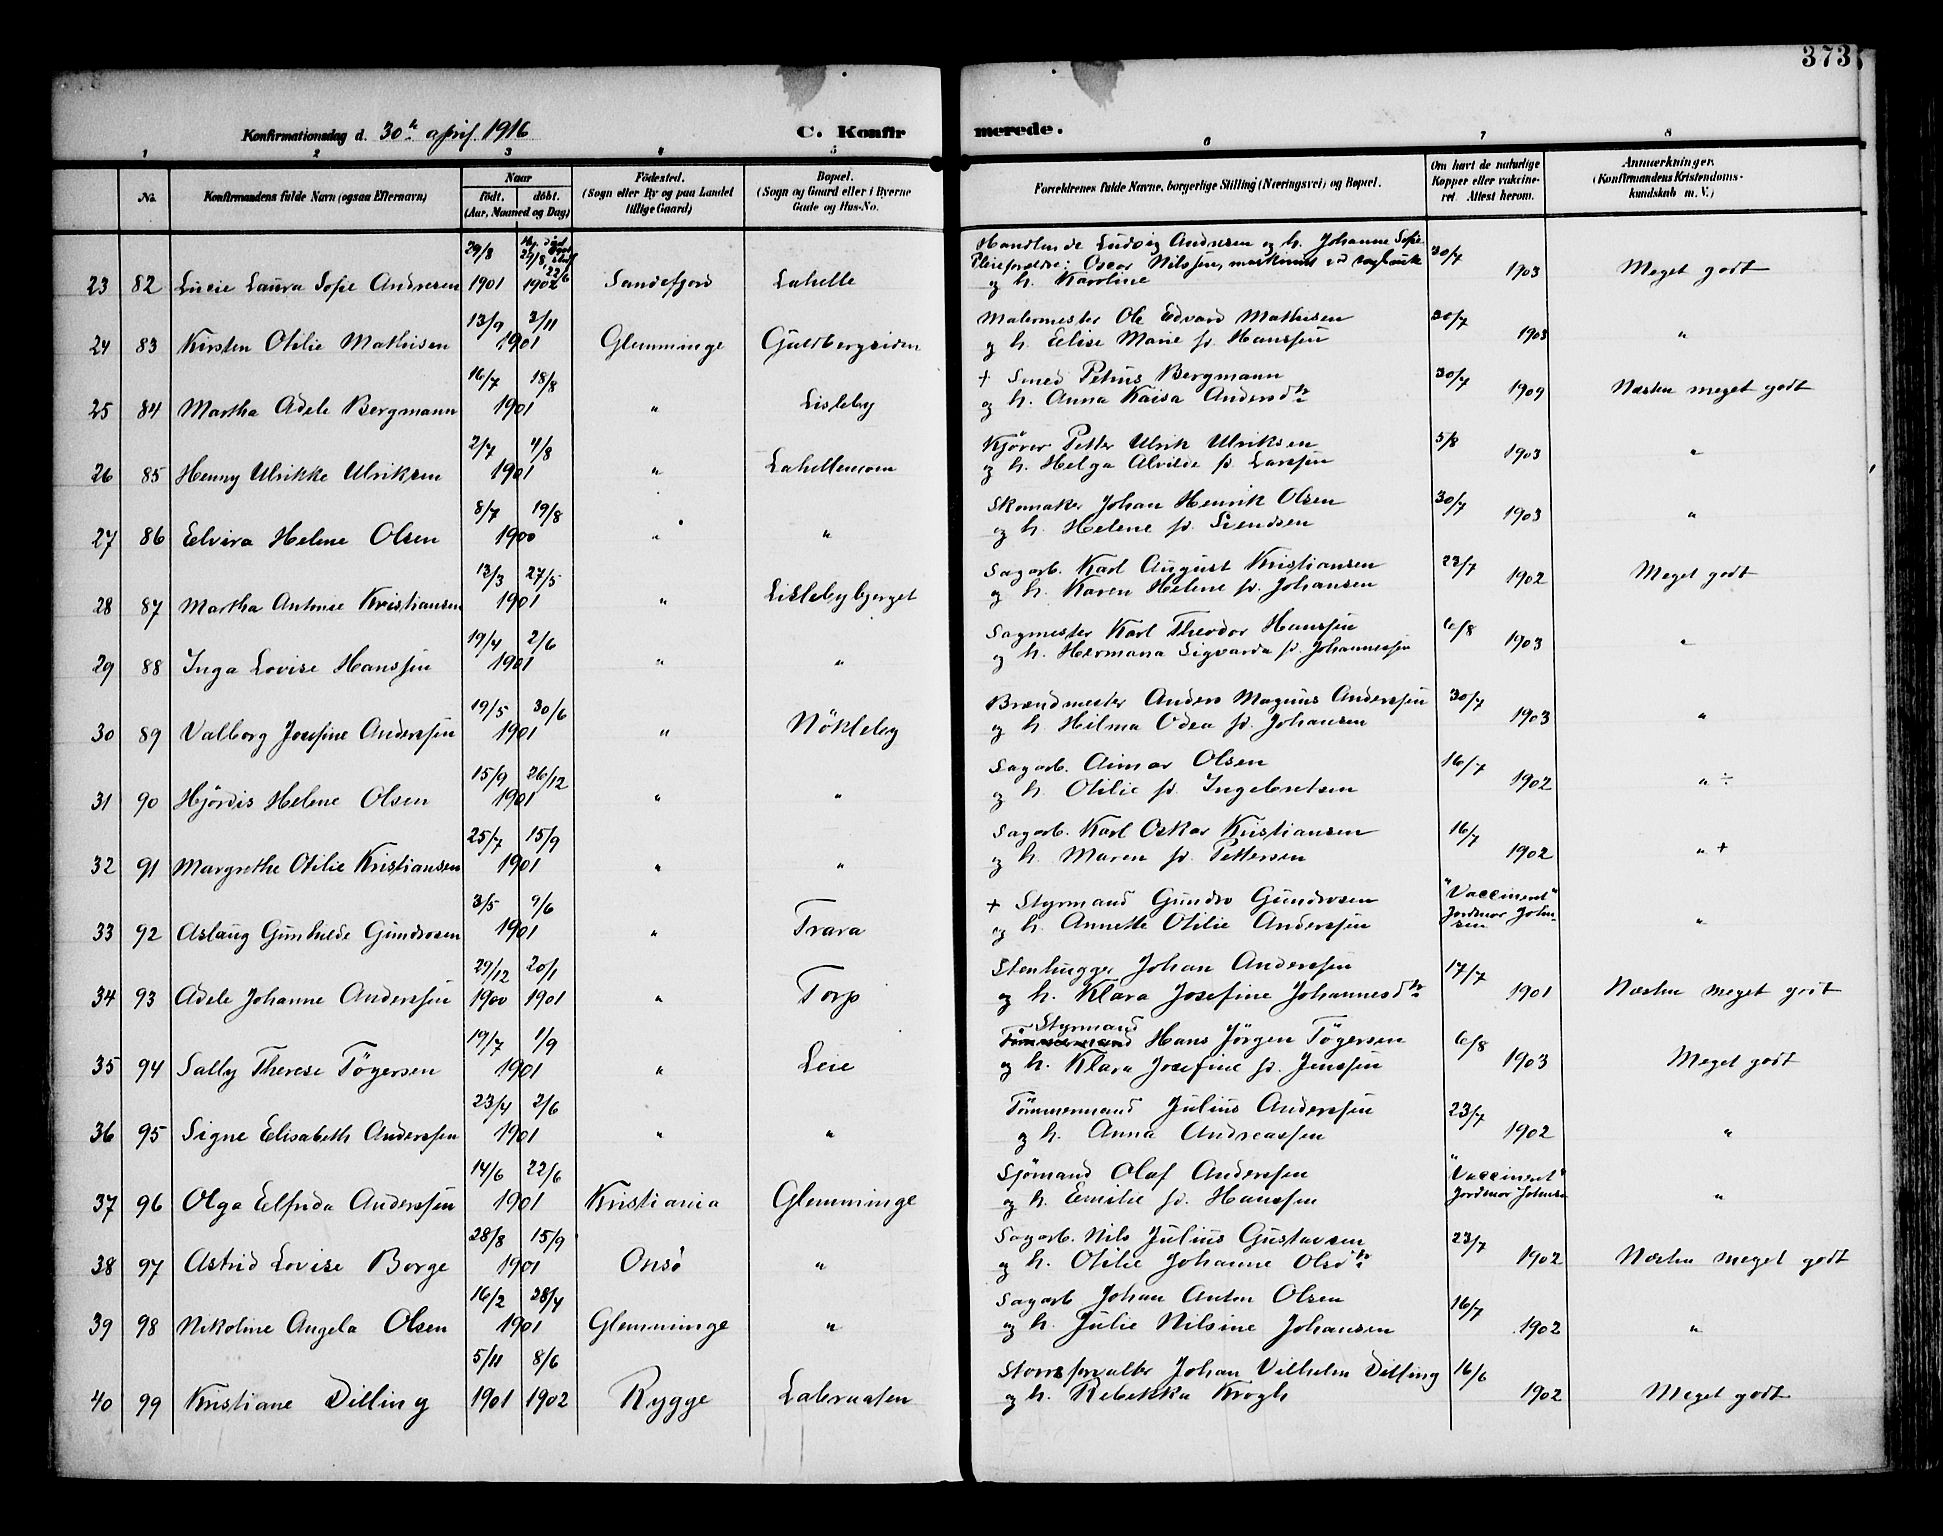 373
Konfirmationsdag d. 30te april 1916
C. Konfirmerede.
1 2 3 4 5 6 7 8
No. Konfirmandens fulde Navn (ogsaa Efternavn) Naar født. døbt. (Aar, Maaned og Dag) Fødested. (Sogn eller By og paa Landet tillige Gaard) Bopæl. (Sogn og Gaard eller i Byerne Gade og Hus-No. Forældrenes fulde Navne, borgerlige Stilling (Næringsvei) og Bopæl. Om havt de naturlige Kopper eller vakcineret. Attest herom. Anmærkninger. (Konfirmandens Kristendomskundskab m. V.)
29/8 Handlende Ludvig Andresen og h. Johanne Sofie 30/7
Pleieforældre: Oscar Nilssen, maskinist
23 82 Lucie Laura Sofie Andresen 1901 1902 Sandefjord Lahelle og h. Karoline 1903 Meget godt
13/9 3/11 Malermester Ole Edvard Mathisen 30/7
24 83 Kirsten Otilie Mathisen 1901 Glemminge Guldbergsiden og h. Elise Marie f. Hanssen 1903 "
16/7 18/8 + Smed Petrus Bergmann 30/7
25 84 Martha Adele Bergmann 1901 " Lisleby og h. Anna Kaisa Andersdtr 1909 Næsten meget godt
2/7 4/8 Kjører Petter Ulrik Ulriksen 5/8
26 85 Henny Ulrikke Ulriksen 1901 " Lahellemoen og h. Helga Alvilde f. Larssen 1903 "
8/7 19/8 Skomaker Johan Henrik Olsen 30/7
27 86 Elvira Helene Olsen 1900 " " og h. Helene f. Svendsen 1903 "
13/3 27/5 Sagarb. Karl August Kristiansen 23/7
28 87 Martha Antonie Kristiansen 1901 " Lislebybjerget og h. Karen Helene f. Johansen 1902 Meget godt
19/4 2/6 Sagmester Karl Theodor Hanssen 6/8
29 88 Inga Lovise Hanssen 1901 " " og h. Hermana Sigvarda f. Johannessen 1903 "
19/5 30/6 Brandmester Anders Magnus Anderssen 30/7
30 89 Valborg Josefine Anderssen 1901 " Nökleby og h. Hilma Odea f. Johansen 1903 "
15/9 26/12 Sagarb. Aimar Olsen 16/7
31 90 Hjördis Helene Olsen 1901 " " og h. Otilie f. Ingebretsen 1902 " ÷
25/7 15/9 Sagarb. Karl Oskar Kristiansen 16/7
32 91 Margrethe Otilie Kristiansen 1901 " " og h. Maren f. Pettersen 1902 " +
3/5 9/6 + Styrmand Gundro Gundrosen "Vaccineret"
33 92 Aslaug Gunhilde Gundrosen 1901 " Trara og h. Annette Otilie Anderssen Jordmor Johnsen "
29/12 20/1 Stenhugger Johan Anderssen 17/7
34 93 Adele Johanne Anderssen 1900 1901 " Torp og h. Klara Josefine Johannesdtr 1901 Næsten meget godt
Styrmand
19/7 1/9 Tømmermand Hans Jörgen Tögersen 6/8
35 94 Sally Therese Tögersen 1901 " Leie og h. Klara Josefine f. Jenssen 1903 Meget godt
23/4 2/6 Tömmermand Julius Anderssen 23/7
36 95 Signe Elisabeth Anderssen 1901 " " og h. Anna Andreassen 1902 "
14/6 22/6 Sjömand Olaf Anderssen "Vaccineret"
37 96 Olga Elfrida Anderssen 1901 Kristiania Glemminge og h. Emilie f. Hanssen Jordmor Johnsen "
28/8 15/9 Sagarb. Nils Julius Gustavsen 23/7
38 97 Astrid Lovise Borge 1901 Onsö " og h. Otilie Johanne Olsdtr 1902 Næsten meget godt
16/2 28/4 Sagarb Johan Anton Olsen 16/7
39 98 Nikoline Angela Olsen 1901 Glemminge " og h. Julie Nilsine Johansen 1902 "
5/11 8/6 Johan Vilhelm Dilling 16/6
40 99 Kristiane Dilling 1901 1902 Rygge Labraaten og h. Rebekka Krogh 1902 Meget godt